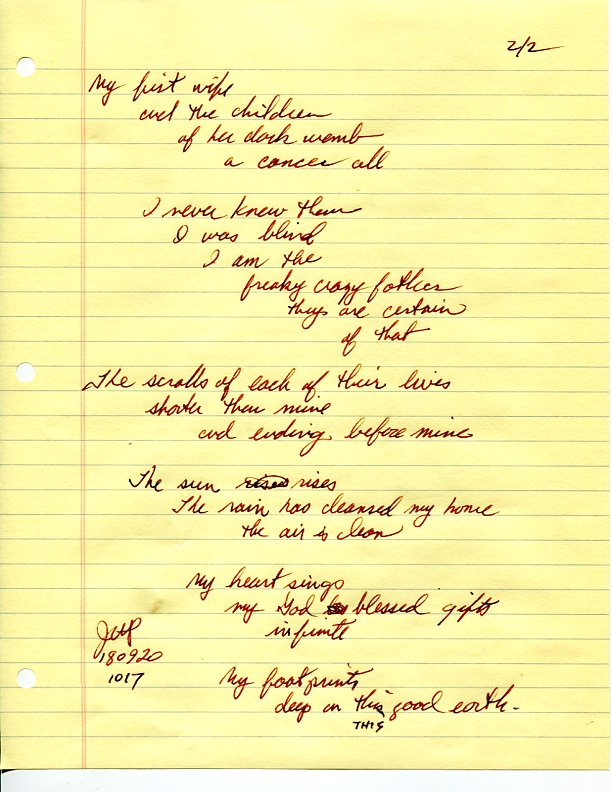 2/2
My first wife
and the children
of her dark womb
a cancer all
I never knew them
I was blind
I am the
freaky crazy father
they are certain
of that
The scrolls of each of their lives
shorter than mine
and ending before mine
The sun rises rises
The rain has cleansed my home
the air is clean
My heart sings
my God blessed gifts
infinite
My footprints
deep on this good earth.
THIS
180920
1017